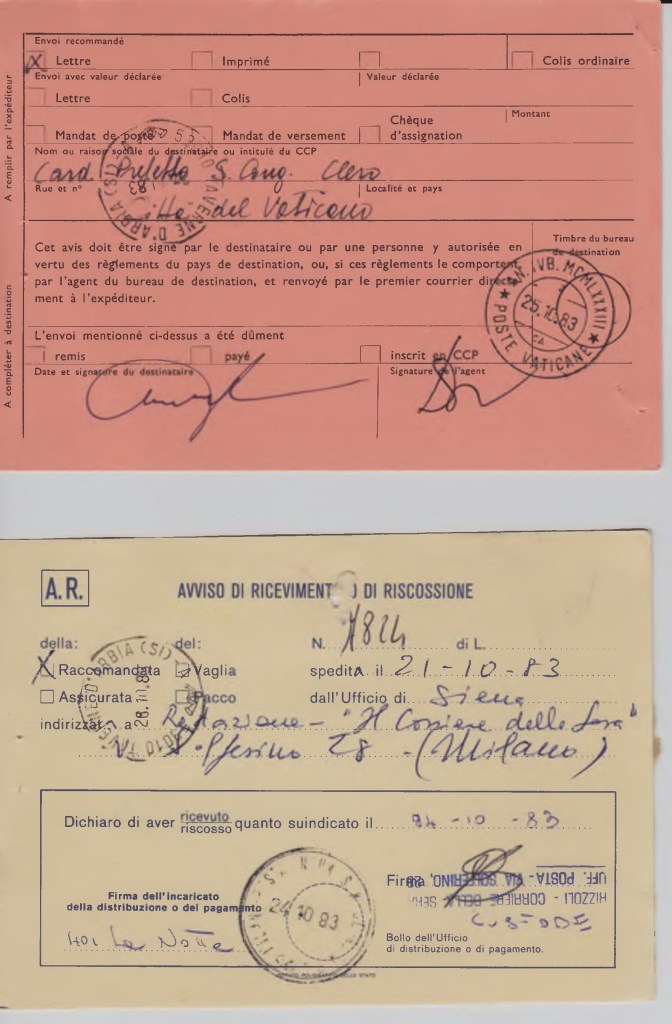 Envoi recommandé
X Lettre Imprimé Colis ordinaire
Envoi avec valeur déclarée Valeur déclarée
Lettre Colis
Montant
Mandat de poste Mandat de versement Chèque d'assignation
Nom ou raison sociale du destinataire ou intitulé du CCP
Card. Prefetto S. Cong. Clero
Rue et n° Localité et pays
Città del Vaticano
A remplir par l'expéditeur
53010 TAVERNE D'ARBIA (SI)
Cet avis doit être signé par le destinataire ou par une personne y autorisée en
vertu des règlements du pays de destination, ou, si ces règlements le comportent,
par l'agent du bureau de destination, et renvoyé par le premier courrier directe-
ment à l'expéditeur.
Timbre du bureau
de destination
IVB. MCMLXXXIII
25.10.83
POSTE VATICANE
L'envoi mentionné ci-dessus a été dûment
remis payé inscrit en CCP
Date et signature du destinataire Signature de l'agent
A compléter à destination
A.R. AVVISO DI RICEVIMENTO O DI RISCOSSIONE
della: del: N. 1824 di L.
X Raccomandata Vaglia spedita il 21-10-83
Assicurata Pacco dall'Ufficio di Siena
indirizzata a Redazione - "Il Corriere della Sera"
V. Solferino 28 - (Milano)
53010 TAVERNE D'ARBIA (SI)
28.10.83
Dichiaro di aver ricevuto quanto suindicato il 24-10-83
riscosso
Firma
UFF. POSTA - VIA SOLFERINO, 28
RIZZOLI - CORRIERE DELLA SERA
CUSTODE
Firma dell'incaricato
della distribuzione o del pagamento
401 La Notte
24.10.83
Bollo dell'Ufficio
di distribuzione o di pagamento.